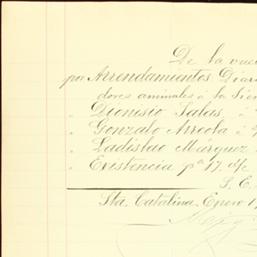 De la vuel
por Arrendamientos Diari
dores animales á la Sier
" Dionisio Salas, á
" Gonzalo Arreola á
" Ladislao Márquez
" Existencia pª 17. de
S. E.
Sta. Catalina, Enero 1